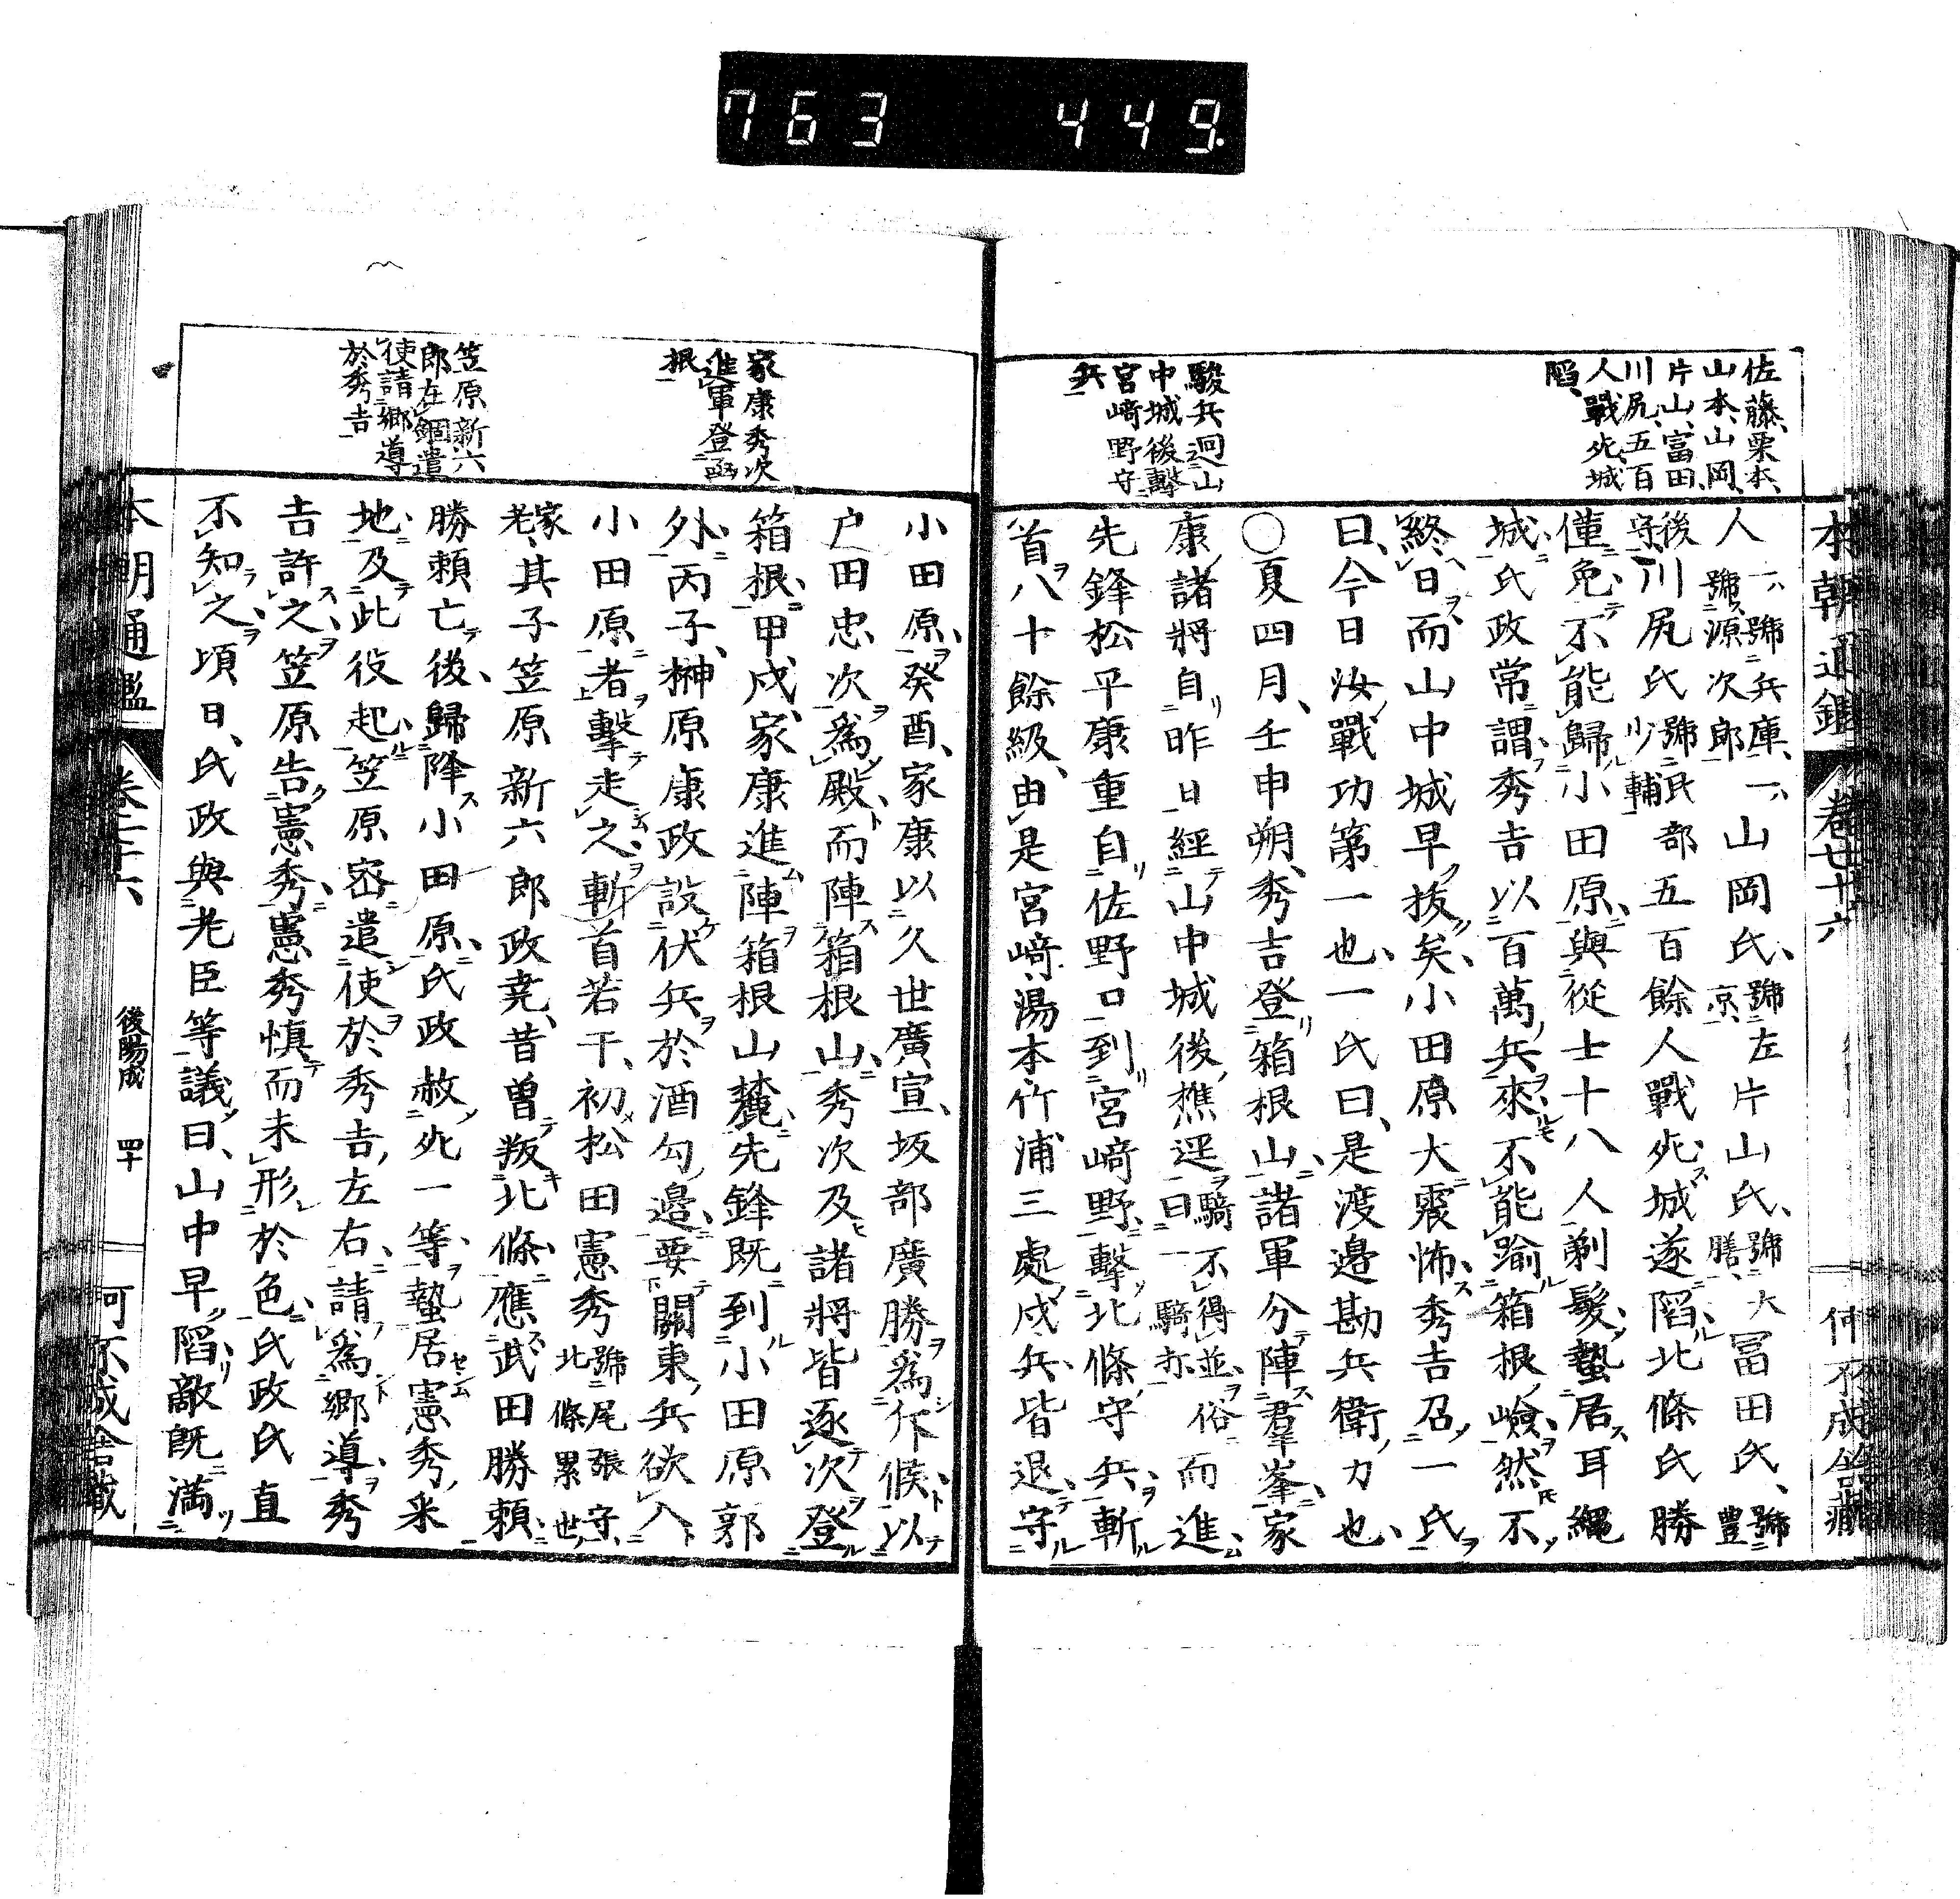 763 449.
本朝通鑑 卷七十六
佐藤、栗本、
山本、山岡、
片山、富田、
川尻、五百
人戰死、城
陷、
駿兵迴山
中城後擊
宮﨑野守
兵
人一號兵庫、一號源次郎、山岡氏、號左京、片山氏、號大膳、冨田氏、號豊
後守、川尻氏號民部少輔五百餘人戰死、城遂陷、北條氏勝
僅免、不能歸小田原、與從士十八人剃髮、蟄居耳繩
城、氏政常謂、秀吉以百萬兵來、不能踰箱根嶮、然不
終日而山中城早拔矣、小田原大震怖、秀吉召一氏
曰、今日汝戰功第一也、一氏曰、是渡邉勘兵衛力也、
○夏四月、壬申朔、秀吉登箱根山、諸軍分陣羣峯、家
康諸將自昨日經山中城後樵逕騎不得並、俗曰一騎亦而進、
先鋒松平康重自佐野口到宮﨑野、擊北條守兵、斬
首八十餘級、由是宮﨑湯本竹浦三處戍兵、皆退守
家康秀次
進軍登函
根
笠原新六
郎在錮遣
使請鄉導
於秀吉
小田原、癸酉、家康以久世廣宣、坂部廣勝爲斥候、以
户田忠次爲殿、而陣箱根山、秀次及諸將皆逐次登
箱根、甲戌、家康進陣箱根山麓、先鋒既到小田原郭
外、丙子、榊原康政設伏兵於酒勾邉、要關東兵欲入
小田原者、擊走之、斬首若干、初松田憲秀號尾張守、北條累世
家老、其子笠原新六郎政堯、昔曽叛北條、應武田勝頼、
勝頼亡後、歸降小田原、氏政赦死一等、蟄居憲秀采
地、及此役起、笠原密遣使於秀吉左右、請爲鄉導、秀
吉許之、笠原告憲秀、憲秀慎而未形於色、氏政氏直
不知之、頃日、氏政與老臣等議曰、山中早陷、敵既滿
本朝通鑑 卷七十六 後陽成 四十